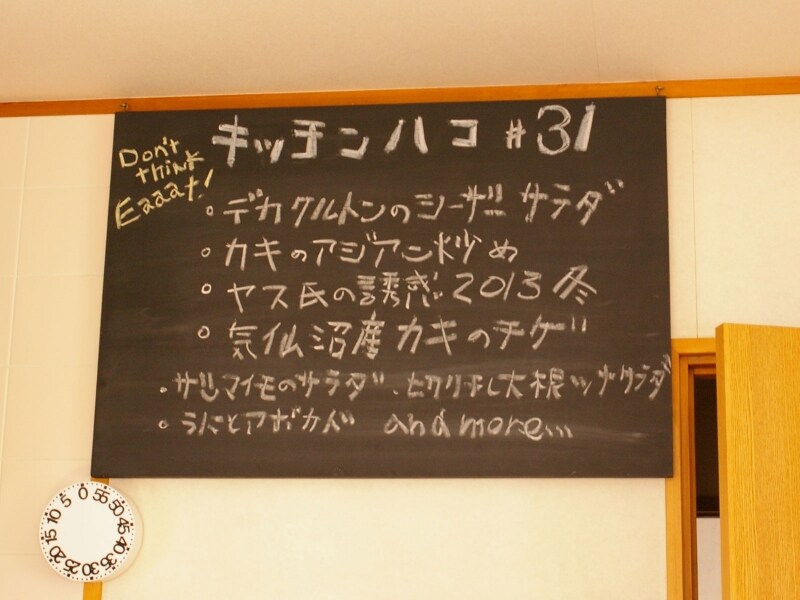 キッチンハコ #31
Don't
think
Eaaat!
○デカクルトンのシーザーサラダ
○カキのアジアン炒め
○ヤス氏の誘惑2013冬
○気仙沼産カキのチゲ
・サツマイモのサラダ、ヒクリチし大根ツナサラダ
○うにとアボカド and more...
0 55 50 45 40 35 30 25 20 15 10 5